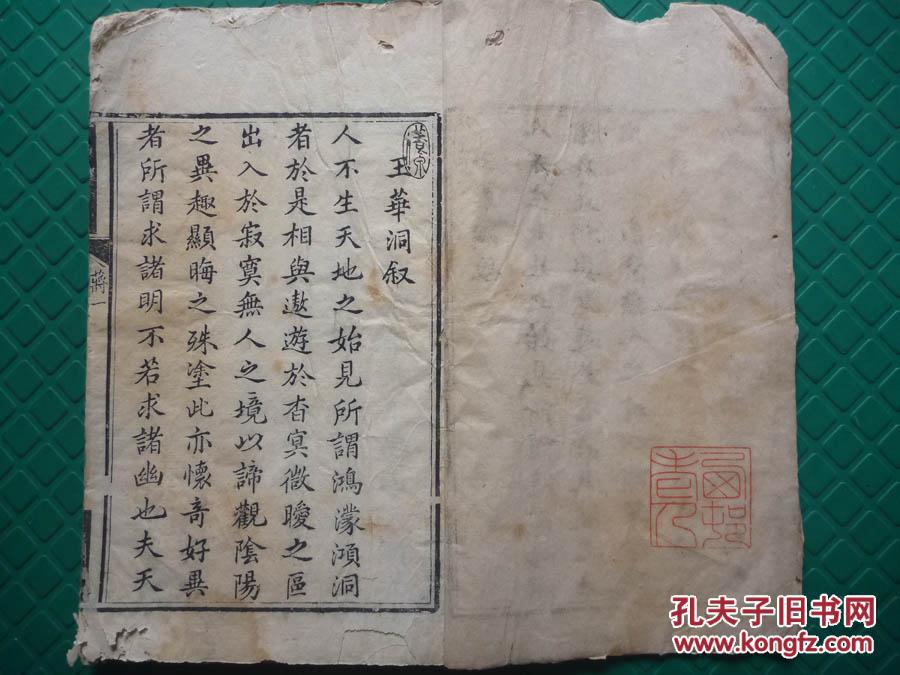 玉華洞叙
人不生天地之始見所謂鴻濛澒洞
者於是相與遨遊於杳冥微曖之區
出入於寂寞無人之境以諦觀陰陽
之異趣顯晦之殊塗此亦懷奇好異
者所謂求諸明不若求諸幽也夫天
蔣一
孔夫子旧书网
www.kongfz.com